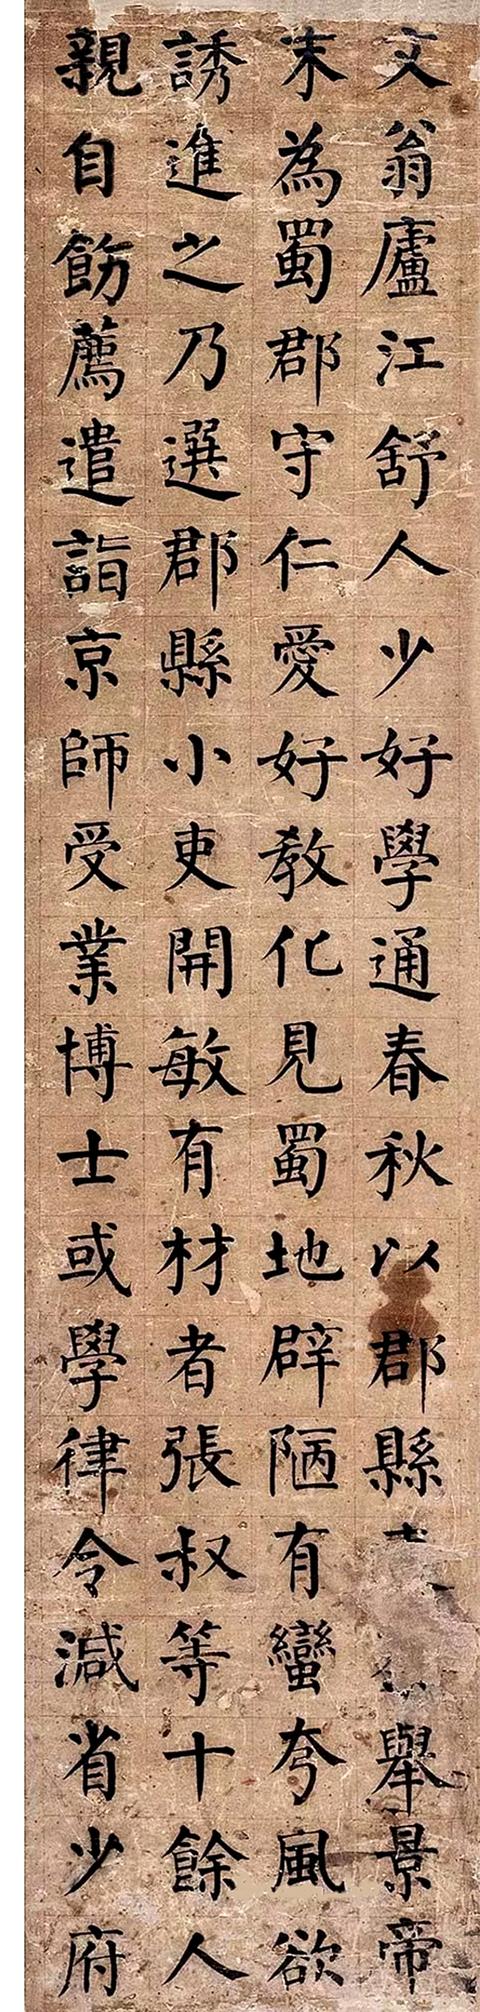 文翁廬江舒人少好學通春秋以郡縣舉景帝
末為蜀郡守仁愛好教化見蜀地辟陋有蠻夷風欲
誘進之乃選郡縣小吏開敏有材者張叔等十餘人
親自飭薦遣詣京師受業博士或學律令減省少府